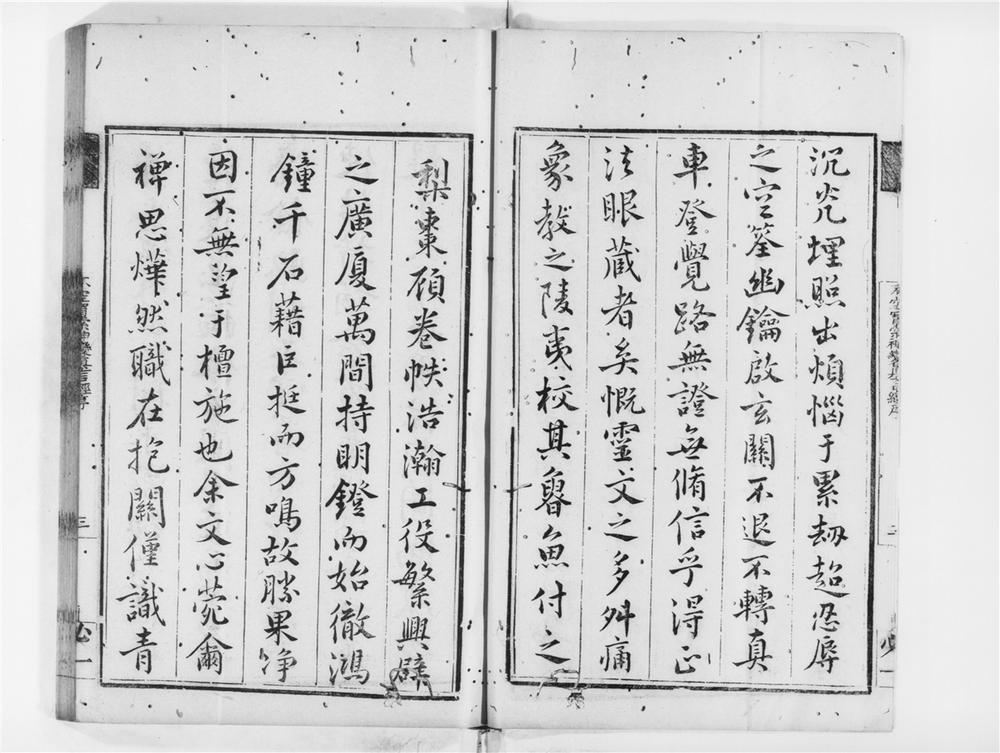 沉光埋照出煩惱于累劫超忍辱
之空筌幽鑰啟玄關不退不轉真
車登覺路無證無脩信乎得正
法眼藏者矣慨靈文之多舛痛
象教之陵夷校其魯魚付之
梨棗顧卷帙浩瀚工役繁興譬
之廣廈萬間持明鐙而始徹鴻
鐘千石藉巨挺而方鳴故勝果淨
因不無望于檀施也余文心菀爾
禪思燁然職在抱關僅識青